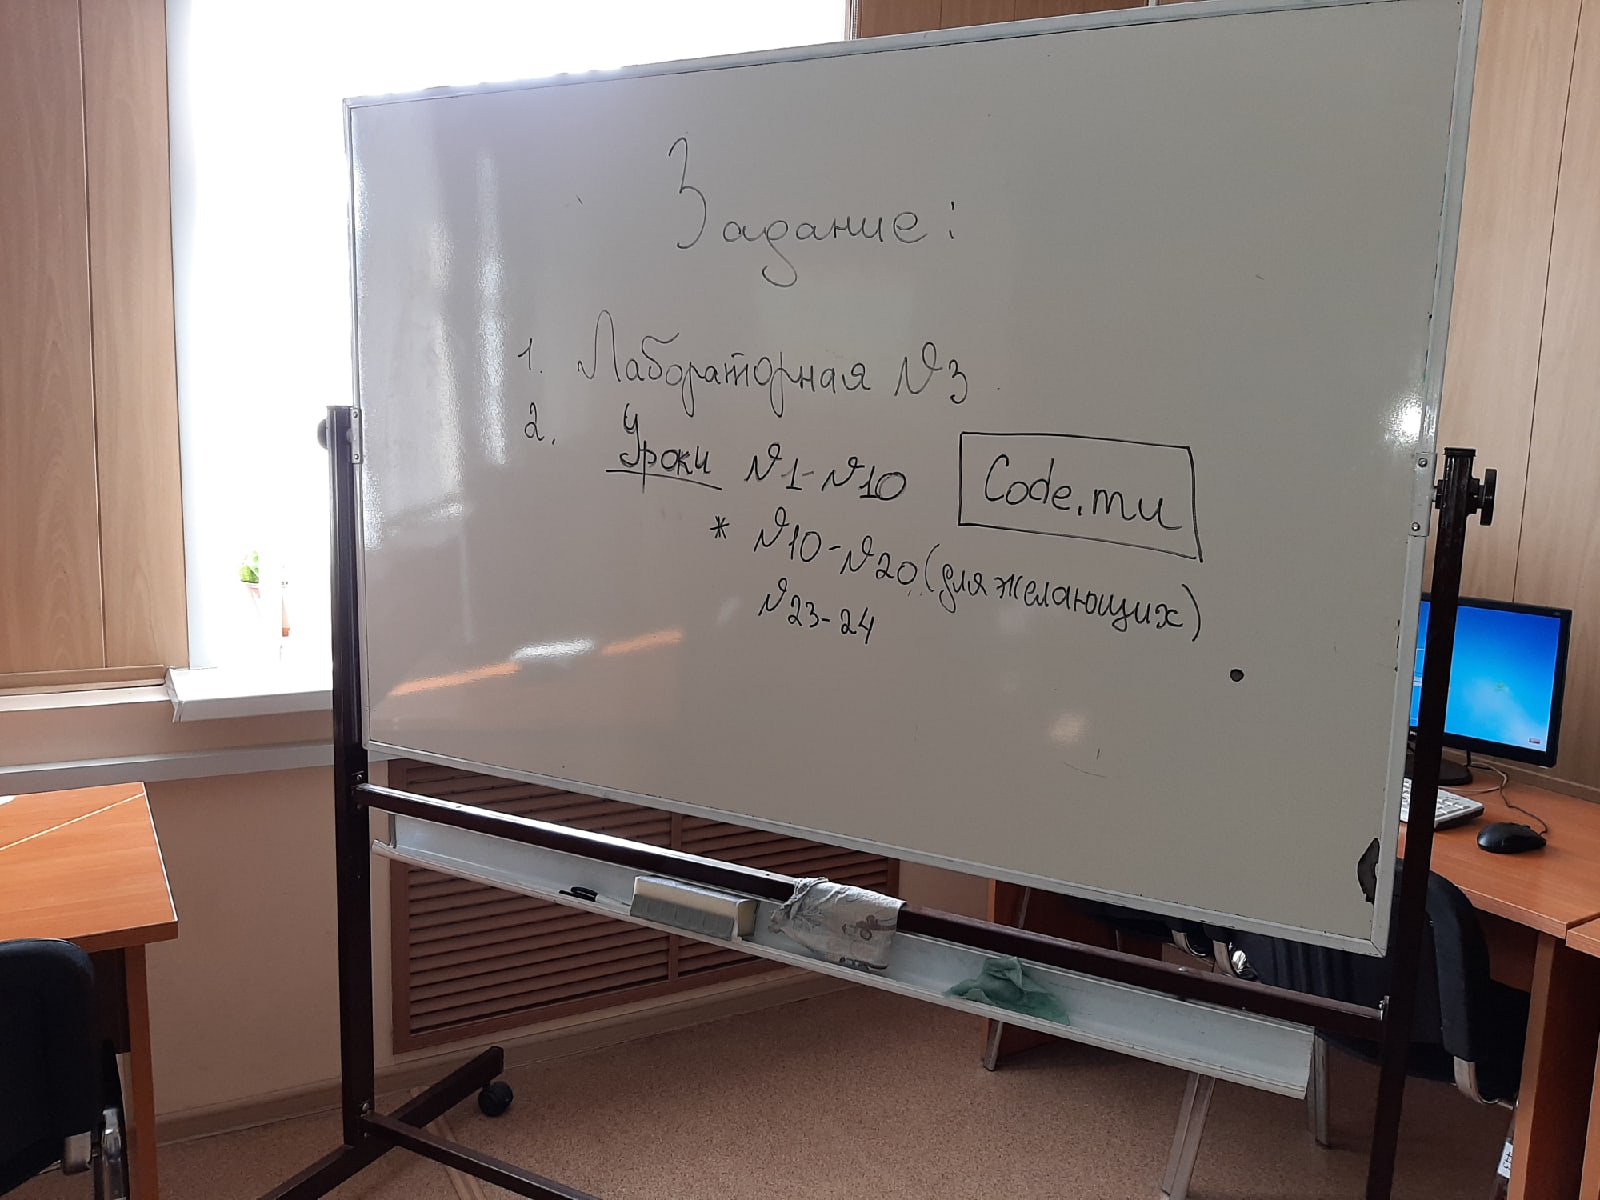 Задание:
1. Лабораторная №3
2. Уроки №1-№10
Code.mu
* №10-№20 (для желающих)
№23-24